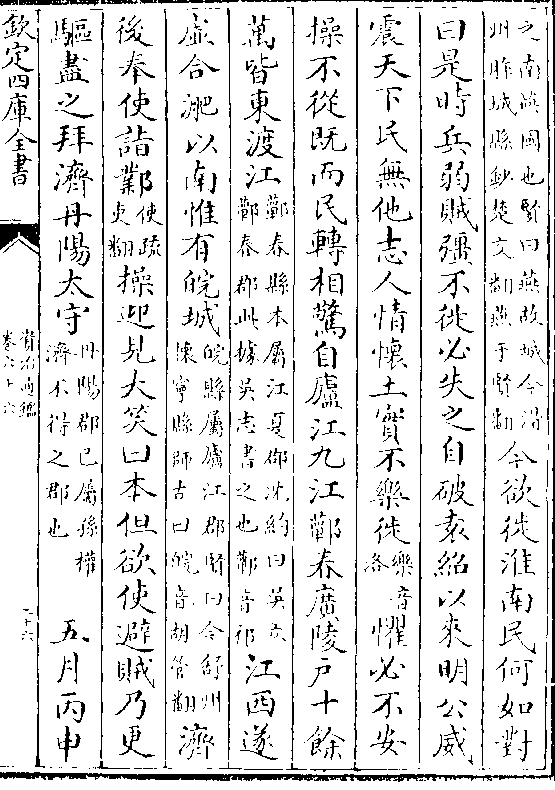 之南燕國也賢曰燕故城今滑
州胙城縣鈔楚交翻燕于賢翻
今欲徙淮南民何如對
曰是時兵弱賊彊不徙必失之自破袁紹以來明公威
震天下民無他志人情懷土實不樂徙
樂音
洛
懼必不安
操不從既而民轉相驚自廬江九江蘄春廣陵戶十餘
萬皆東渡江
蘄春縣本屬江夏郡沈約曰吳立
蘄春郡此據吳志書之也蘄音祁
江西遂
虛合淝以南惟有皖城
皖縣屬廬江郡賢曰今舒州
懷寧縣師古曰皖音胡管翻
濟
後奉使詣鄴
使疏
吏翻
操迎見大笑曰本但欲使避賊乃更
驅盡之拜濟丹陽太守
丹陽郡已屬孫權
濟不得之郡也
五月丙申
欽定四庫全書
資治通鑑
卷六十六